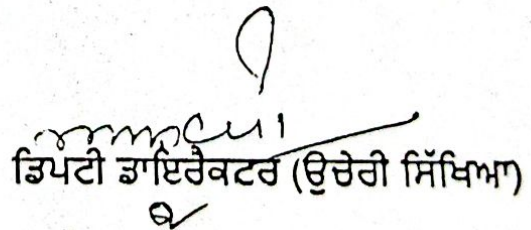 ਡਿਪਟੀ ਡਾਇਰੈਕਟਰ (ਉਚੇਰੀ ਸਿੱਖਿਆ)